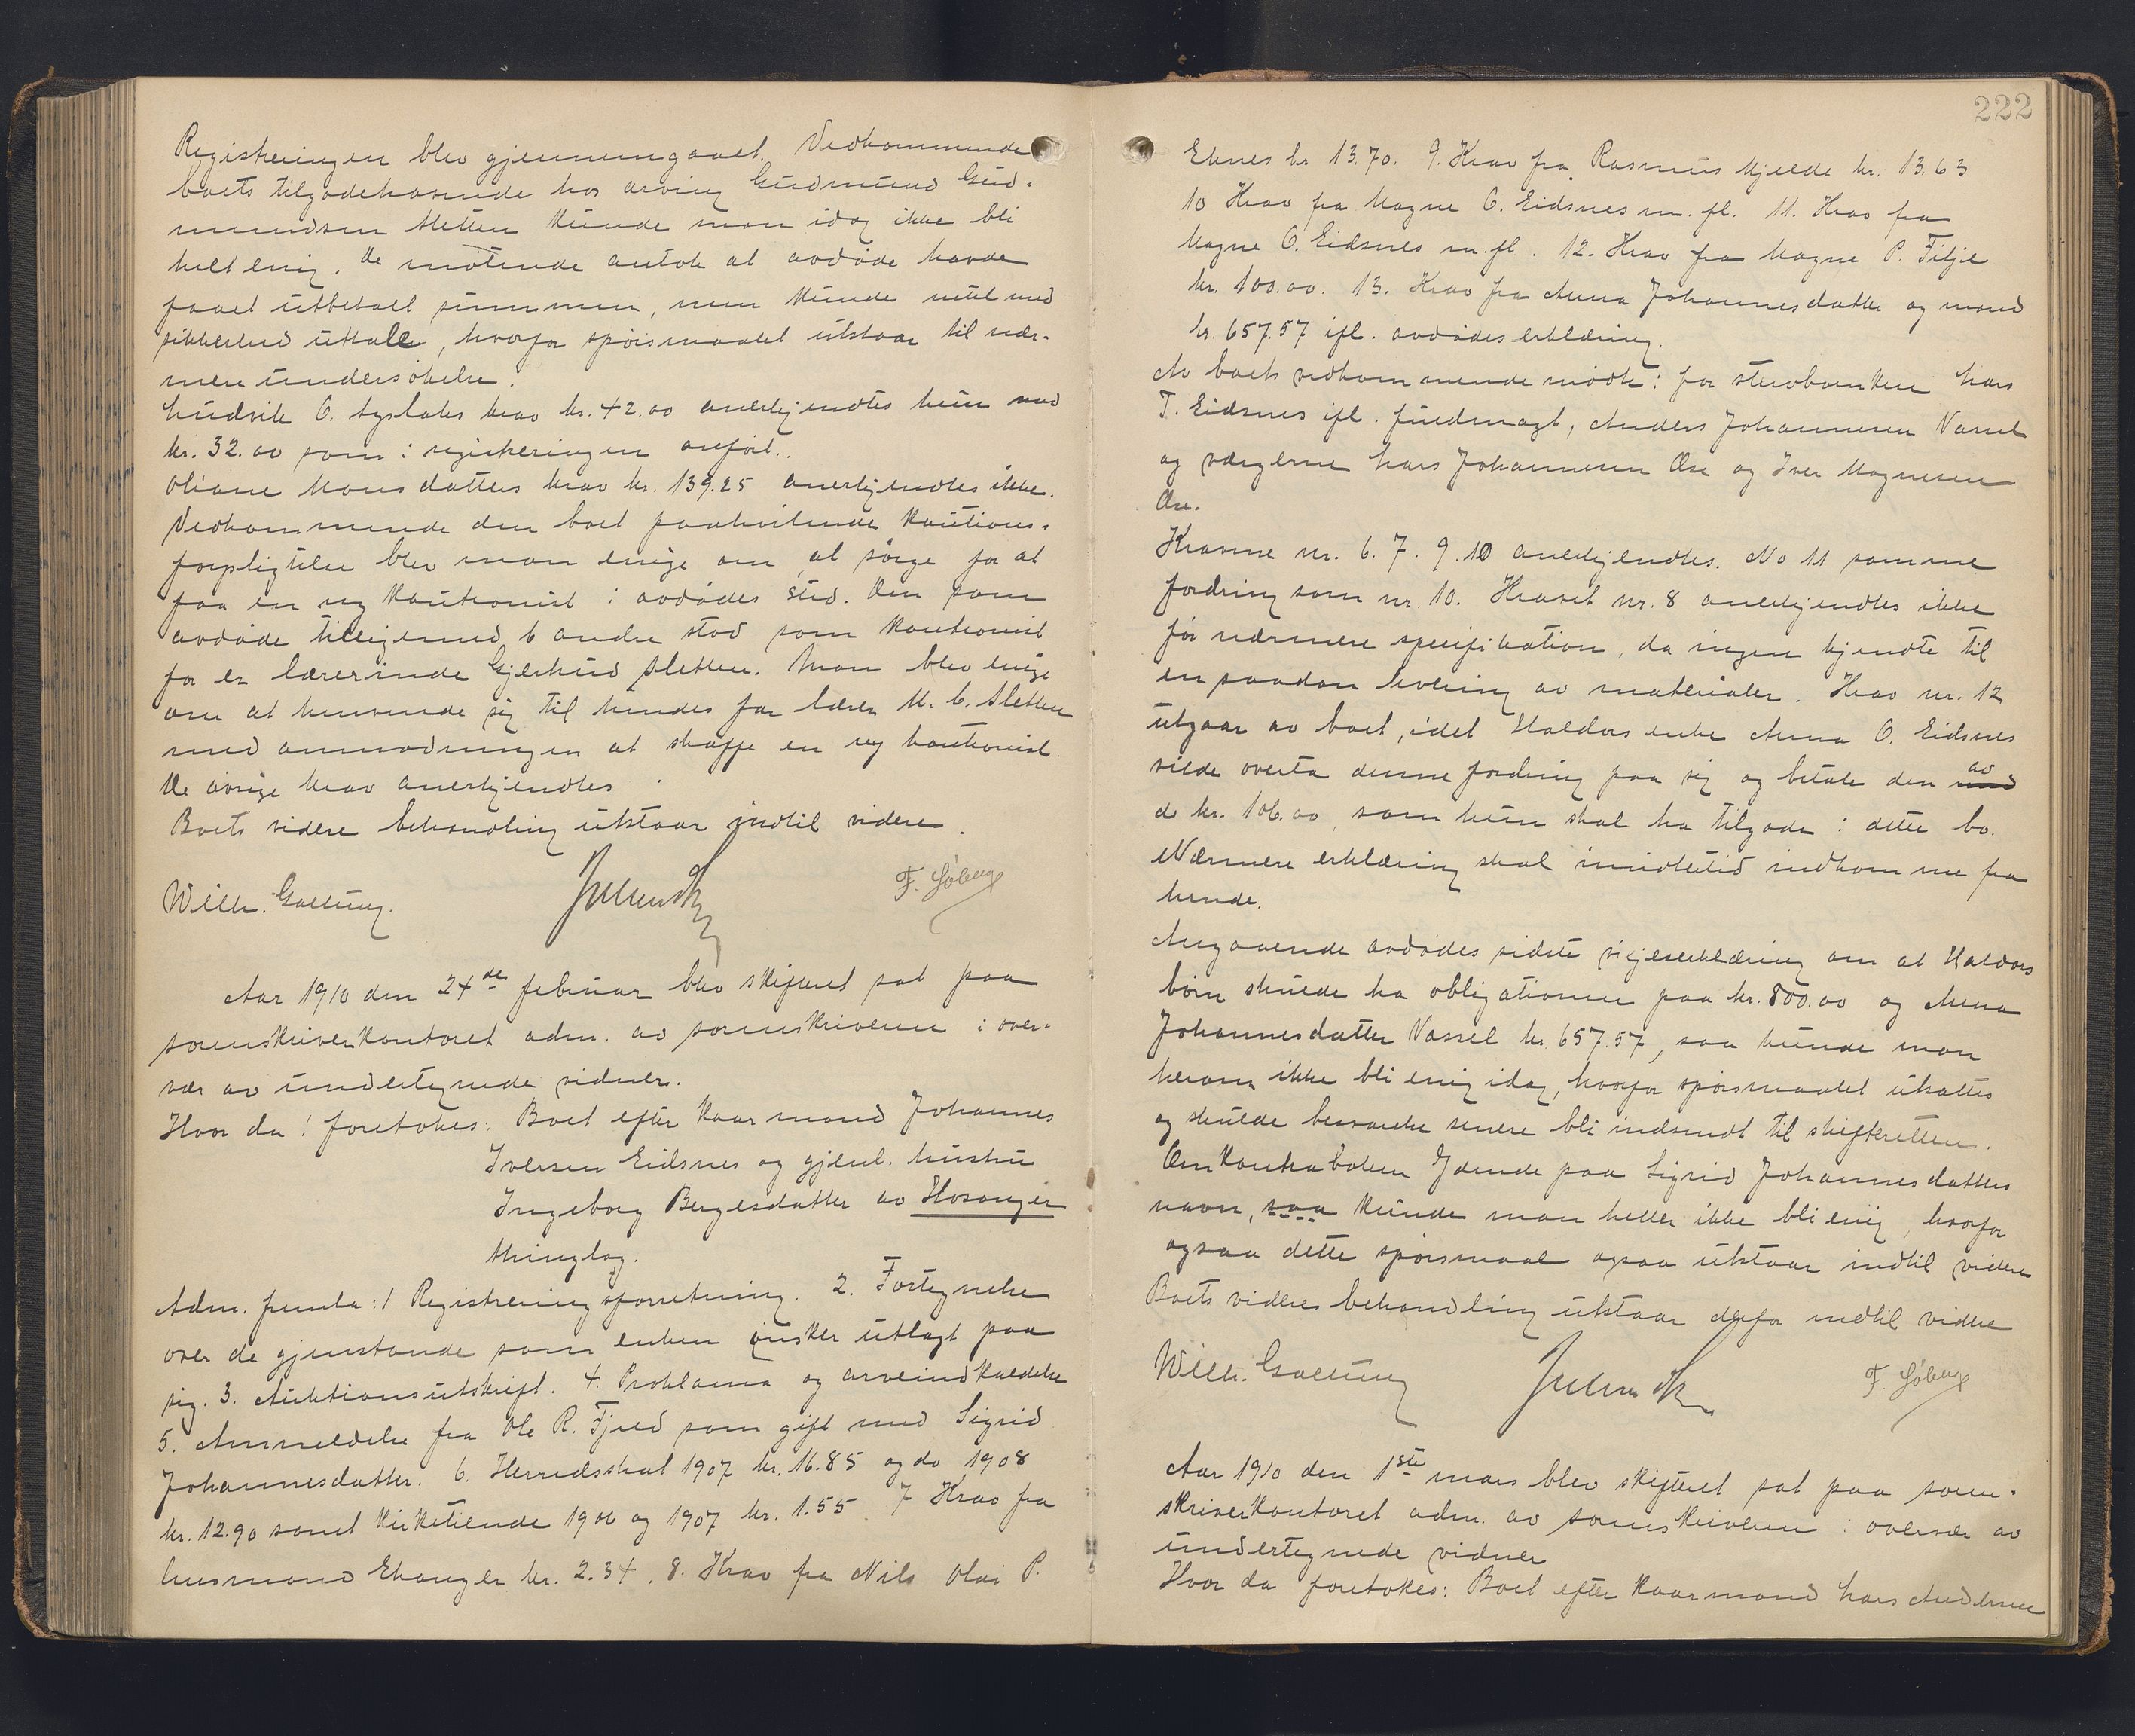 Registreringen blev gjennemgaaet. Vedkommende
boets tilgodehavende hos arving Gudmund Gud-
mundsen Sletten kunde man idag ikke bli
helt enig. De møtende antok at avdøde havde
faaet utbetalt summen, men kunde intet med
sikkerhed uttale, hvorfor spørsmaalet utstaar til nær-
mere undersøkelse.
Ludvik O. Eyslaks krav kr. 42.00 anerkjendtes kun med
kr. 32.00 som i registreringen anført.
Oliane Monsdatters krav kr. 139.25 anerkjendtes ikke.
Vedkommende den boet paahvilende kautions-
forpligtelse blev man enige om at sørge for at
faa en ny kautionist i avdødes sted. Den som
avdøde tilligemed 6 andre stod som kautionist
for er lærerinde Gjertrud Sletten. Man blev enige
om at henvende sig til hendes far lærer M. G. Sletten
med anmodningen at skaffe en ny kautionist.
De øvrige krav anerkjendtes
Boets videre behandling utstaar indtil videre.
Wilh. Gallung. F. Søberg
Aar 1910 den 24de februar blev skifteret sat paa
sorenskriverkontoret adm. av sorenskriveren i over-
vær av undertegnede vidner.
Hvor da: foretokes: Boet efter kaarmand Johannes
Iversen Eidsnes og gjenl. hustru
Ingeborg Børgesdatter av Hosanger
thinglag.
Adm. fremla: 1 Registreringsforretning. 2. Fortegnelse
over de gjenstande som enken ønsker utlagt paa
sig. 3. Auktionsutskrift. 4. Proklama og arveindkaldelse
5. Anmeldelse fra Ole R. Fjeld som gift med Sigrid
Johannesdatter. 6. Herredsskat 1907 kr. 16.85 og do 1908
kr. 12.90 samt kirketiende 1906 og 1907 kr. 1.55 7 Krav fra
husmand Ekanger kr. 2.34. 8. Krav fra Nils Olai P.
222
Eknes kr 13.70. 9. Krav fra Rasmus Kjelde kr. 13.63
10 Krav fra Magne O. Eidsnes m. fl. 11. Krav fra
Magne O. Eidsnes m. fl. 12. Krav fra Magne P. Tilje
kr. 100.00. 13. Krav fra Anna Johannesdatter og mand
kr. 657.57 ifl. avdødes erklæring.
Av boets vedkommende mødte: for sterboenken Lars
T. Eidsnes ifl. fuldmagt, Anders Johannesen Vassel
og værgerne Lars Johannesen Øse og Iver Magnesen
Øse.
Kravene nr. 6. 7. 9. 10 anerkjendtes. No 11 samme
fordring som nr. 10. Kravet nr. 8 anerkjendtes ikke
før nærmere spesifikation, da ingen kjendte til
en saadan levering av materialer. Krav nr. 12
utgaar av boet, idet Haldors enke Anna O. Eidsnes
vilde overta denne fordring paa sig og betale den med av
de kr. 106.00, som hun skal ha tilgode i dette bo.
Nærmere erklæring skal imidlertid indkomme fra
hende.
Angaaende avdødes sidste viljeserklæring om at Haldors
børn skulde ha obligationen paa kr. 800.00 og Anna
Johannesdatter Vassel kr. 657.57, saa kunde man
herom ikke bli enig idag, hvorfor spørsmaalet utsattes
og skulde besvarelse senere bli indsendt til skifteretten.
Om kontraboken lydende paa Sigrid Johannesdatters
navn, saa kunde man heller ikke bli enig, hvorfor
ogsaa dette spørsmaal ogsaa utstaar indtil videre
Boets videre behandling utstaar derfor indtil videre
Wilh. Gallung F. Søberg
Aar 1910 den 1ste mars blev skifteret sat paa soren-
skriverkontoret adm. av sorenskriveren i overvær av
undertegnede vidner
Hvor da foretokes: Boet efter kaarmand Lars Andersen